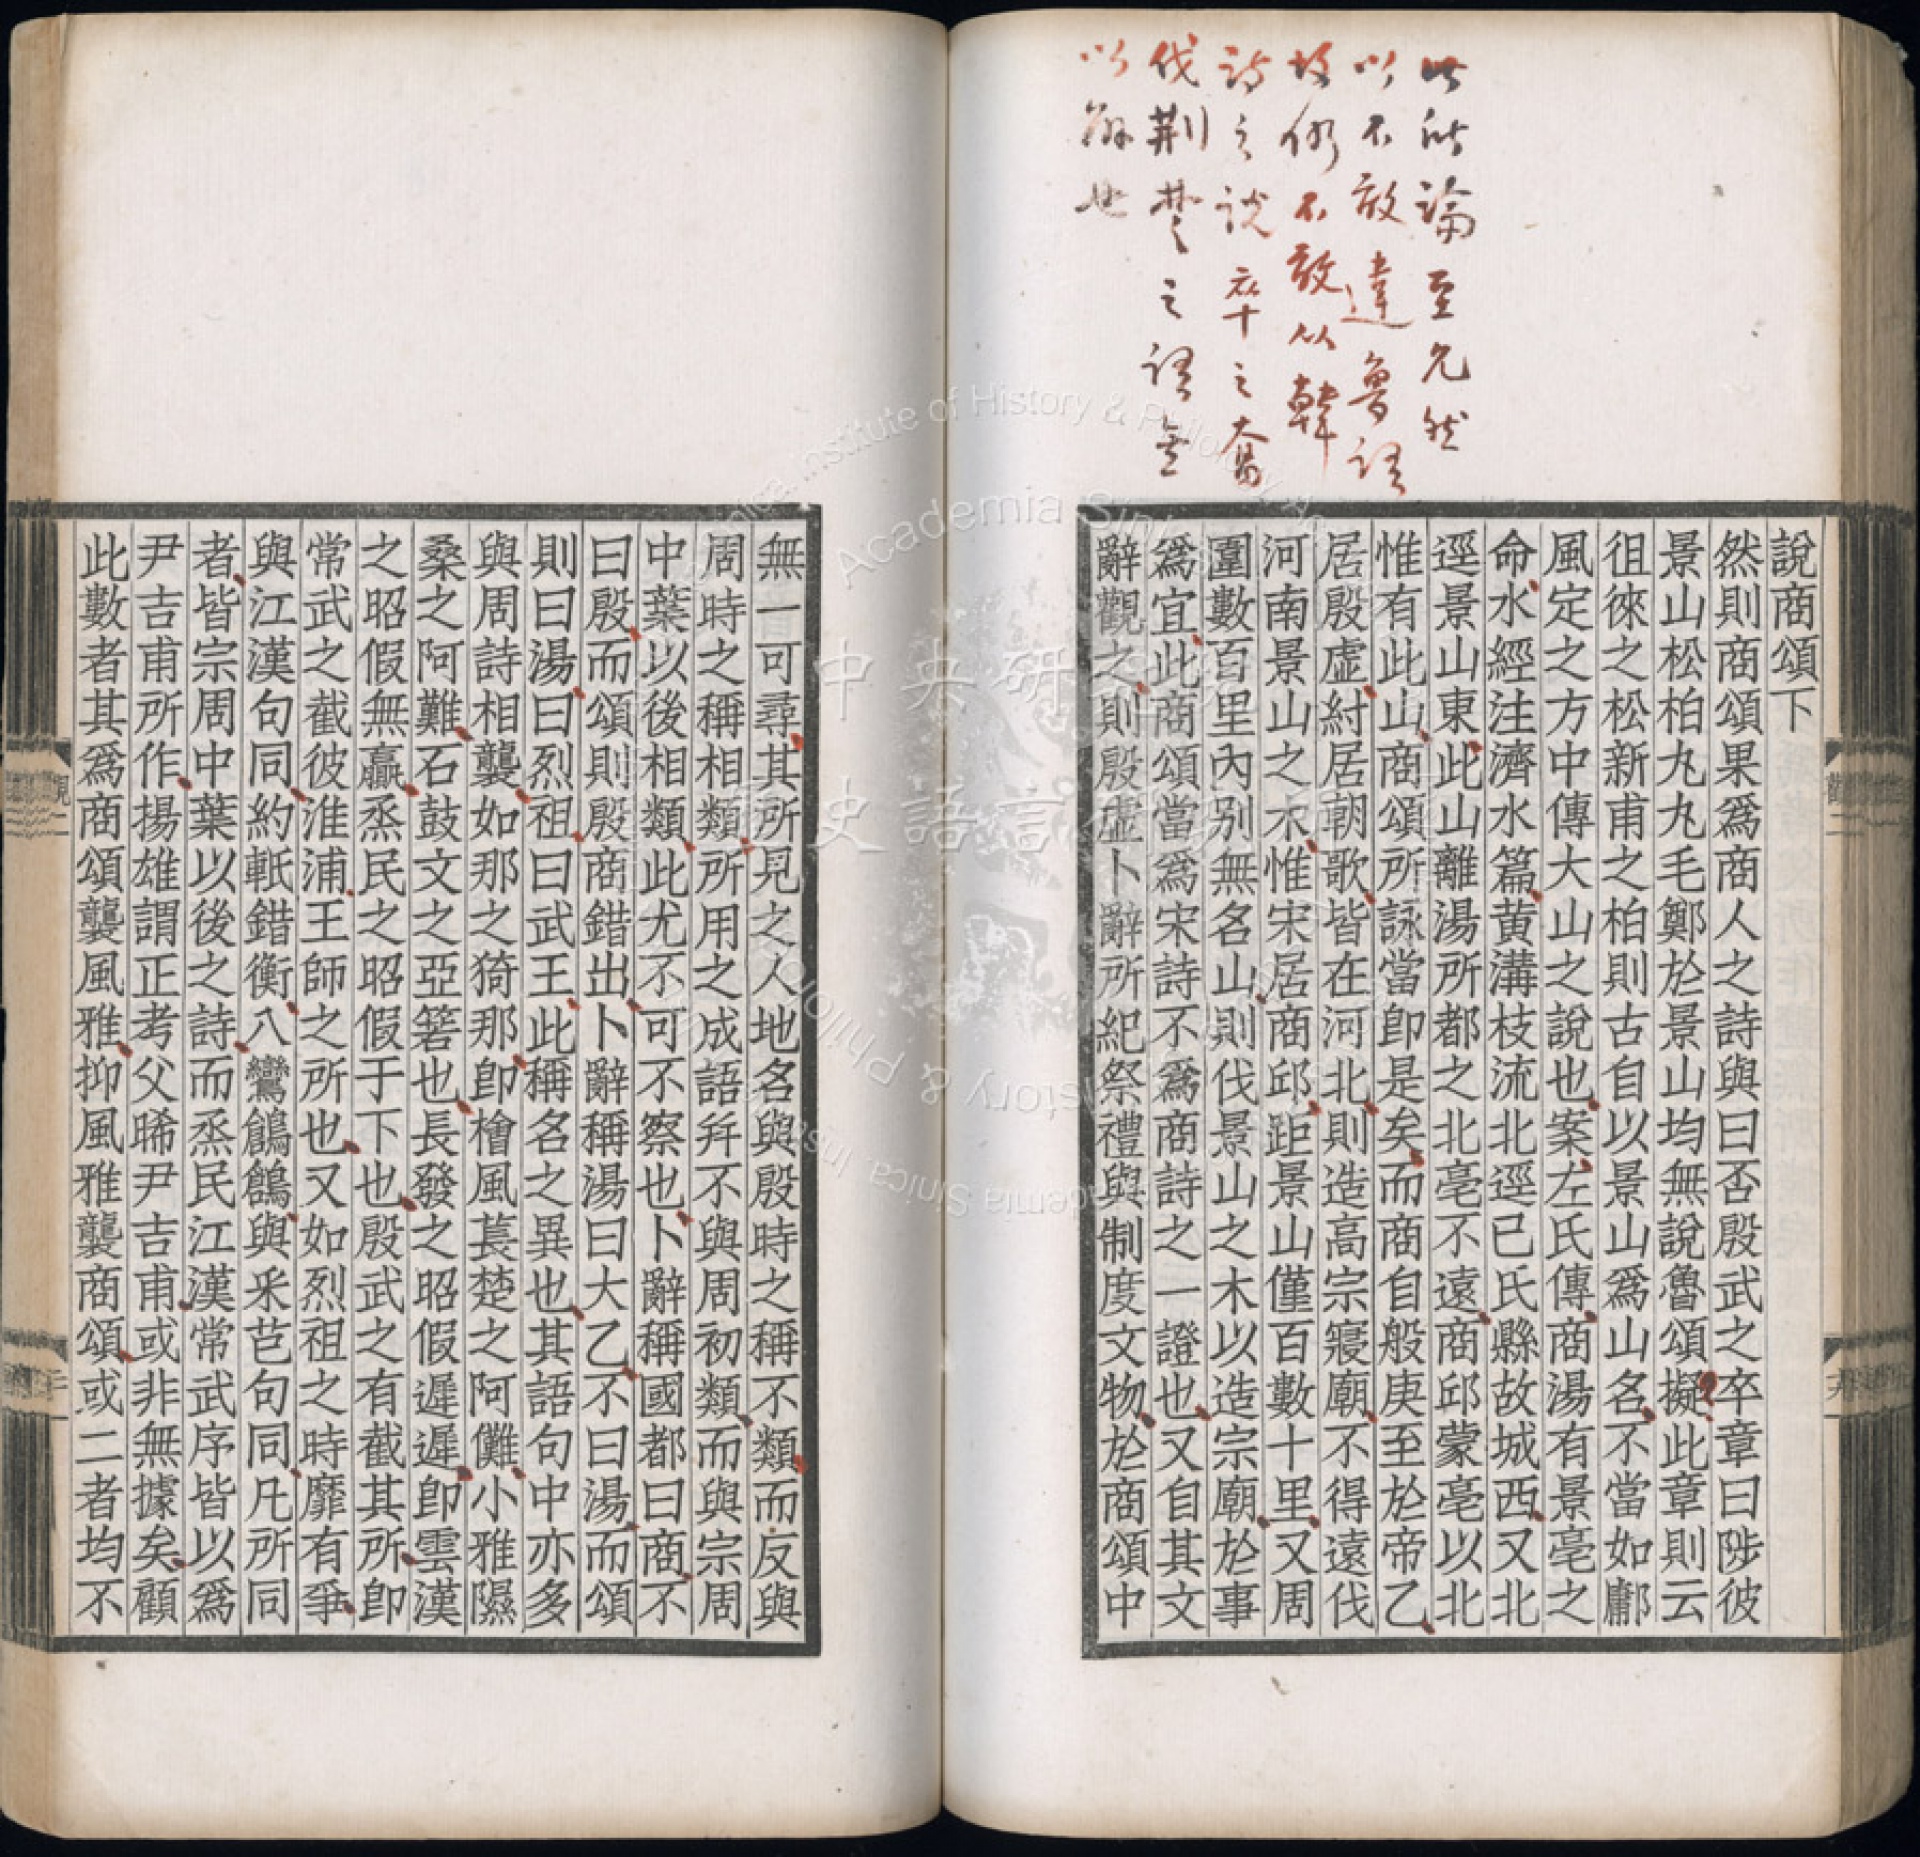 此所論至允然
以不敢違魯語
故仍不敢从韓
詩之說卒之奮
伐荊楚之語無
以解也
說商頌下
然則商頌果為商人之詩與曰否殷武之卒章曰陟彼
景山松柏丸丸毛鄭於景山均無說魯頌擬此章則云
徂徠之松新甫之柏則古自以景山為山名不當如鄘
風定之方中傳大山之說也案左氏傳商湯有景亳之
命水經注濟水篇黃溝枝流北逕已氏縣故城西又北
逕景山東此山離湯所都之北亳不遠商邱蒙亳以北
惟有此山商頌所詠當卽是矣而商自般庚至於帝乙
居殷虛紂居朝歌皆在河北則造高宗寢廟不得遠伐
河南景山之木惟宋居商邱距景山僅百數十里又周
圍數百里內別無名山則伐景山之木以造宗廟於事
為宜此商頌當為宋詩不為商詩之一證也又自其文
辭觀之則殷虛卜辭所紀祭禮與制度文物於商頌中
無一可尋其所見之人地名與殷時之稱不類而反與
周時之稱相類所用之成語幷不與周初類而與宗周
中葉以後相類此尤不可不察也卜辭稱國都曰商不
曰殷而頌則殷商錯出卜辭稱湯曰大乙不曰湯而頌
則曰湯曰烈祖曰武王此稱名之異也其語句中亦多
與周詩相襲如那之猗那卽檜風萇楚之阿儺小雅隰
桑之阿難石鼓文之亞箬也長發之昭假遲遲卽雲漢
之昭假無贏烝民之昭假于下也殷武之有截其所卽
常武之截彼淮浦王師之所也又如烈祖之時靡有爭
與江漢句同約軝錯衡八鸞鶬鶬與采芑句同凡所同
者皆宗周中葉以後之詩而烝民江漢常武序皆以為
尹吉甫所作揚雄謂正考父晞尹吉甫或非無據矣顧
此數者其為商頌襲風雅抑風雅襲商頌或二者均不